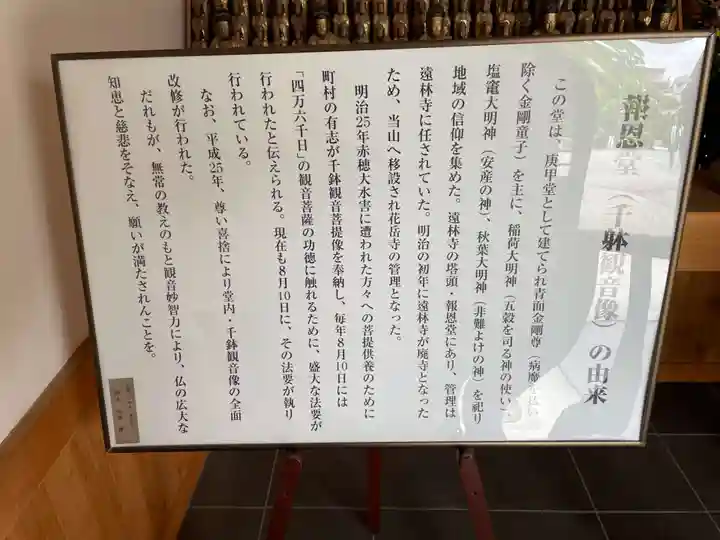 報恩堂（千躰観音像）の由来
この堂は、庚申堂として建てられ青面金剛尊（病魔を払い
除く金剛童子）を主に、稲荷大明神（五穀を司る神の使い）、
塩竈大明神（安産の神）、秋葉大明神（非難よけの神）を祀り
地域の信仰を集めた。遠林寺の塔頭・報恩堂にあり、管理は
遠林寺に任されていた。明治の初年に遠林寺が廃寺となった
ため、当山へ移設され花岳寺の管理となった。
明治25年赤穂大水害に遭われた方々への菩提供養のために
町村の有志が千鉢観音菩提像を奉納し、毎年8月10日には
「四万六千日」の観音菩薩の功徳に触れるために、盛大な法要が
行われたと伝えられる。現在も8月10日に、その法要が執り
行われている。
なお、平成25年、尊い喜捨により堂内・千鉢観音像の全面
改修が行われた。
だれもが、無常の教えのもと観音妙智力により、仏の広大な
知恵と慈悲をそなえ、願いが満たされんことを。